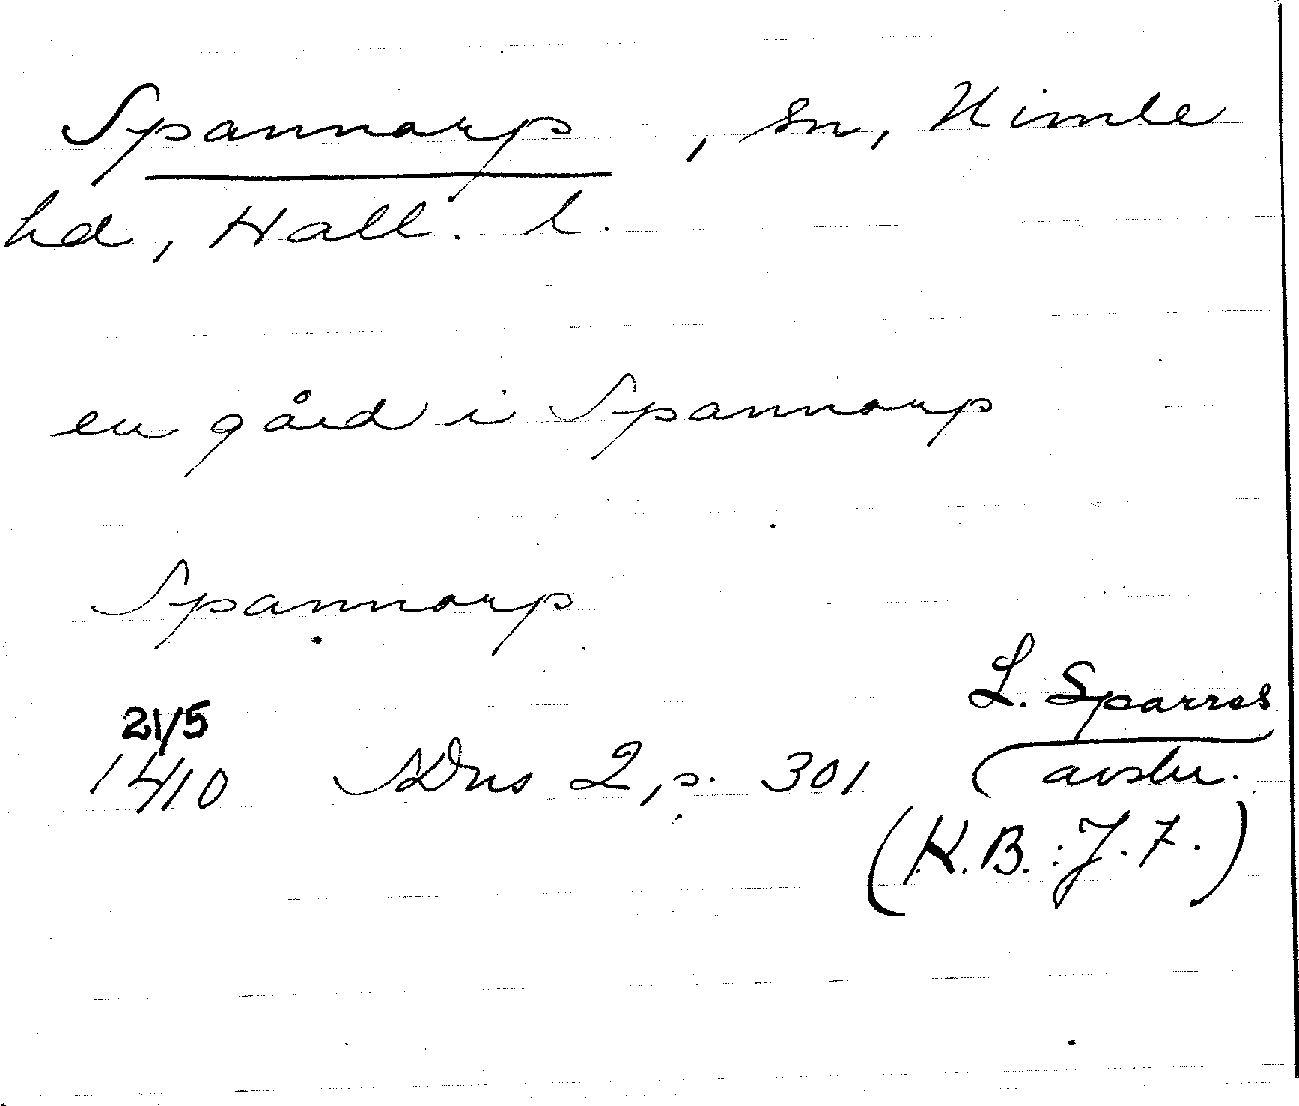 Spannarp, sn, Himle
hd, Hall. l.
en gård i Spannarp
Spannarp
21/5
1410 SDns 2, s. 301
L. Sparres
avskr.
(K.B.: J.F.)